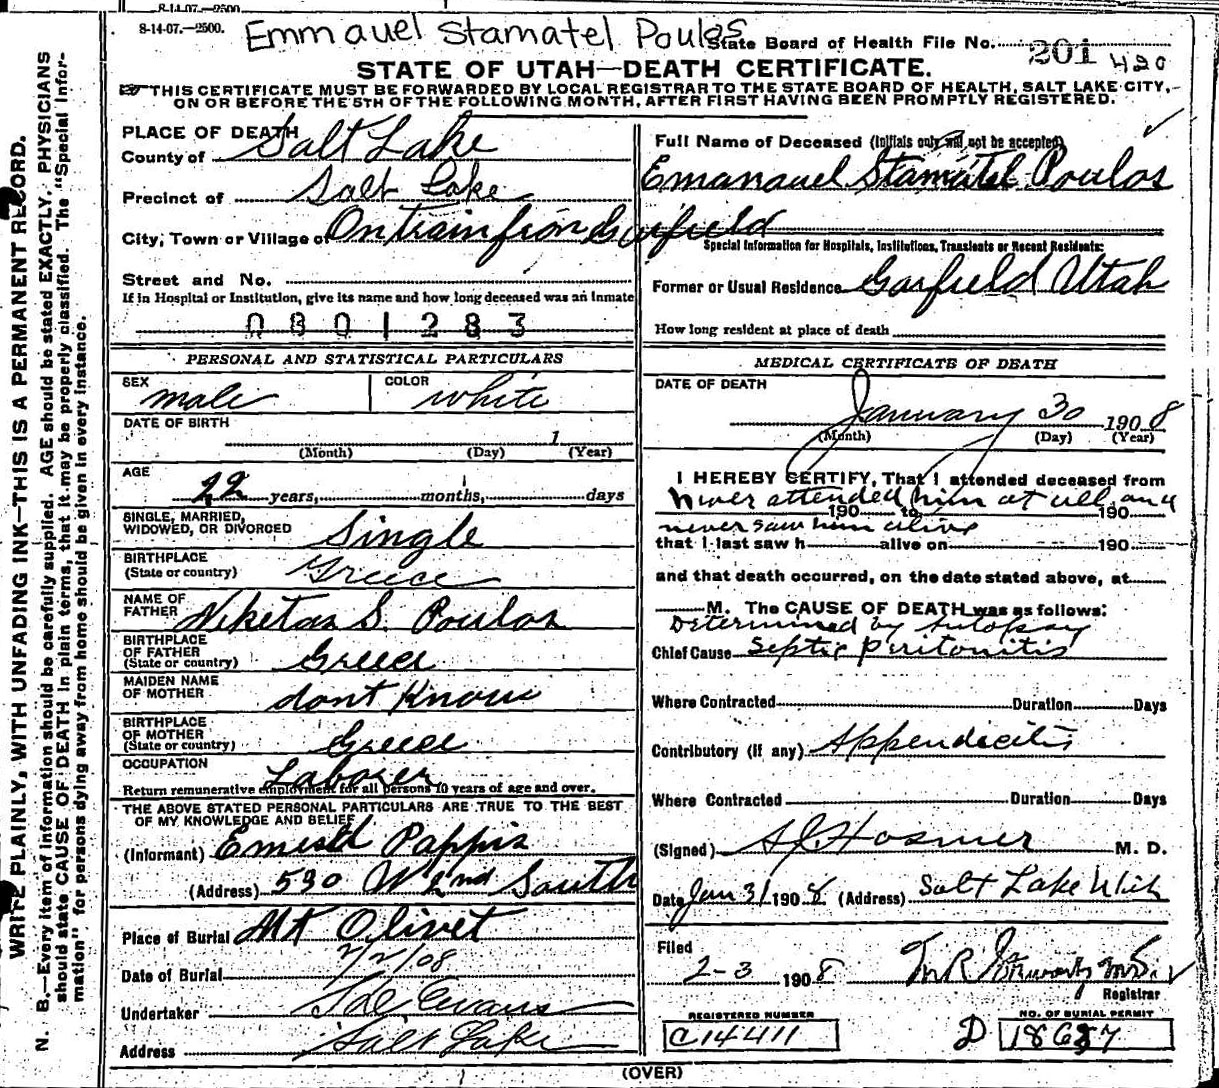 8-14-07.—2500.
8-14-07.—2500. Emmanuel Stamatel Poulos State Board of Health File No. 201 420
STATE OF UTAH—DEATH CERTIFICATE.
THIS CERTIFICATE MUST BE FORWARDED BY LOCAL REGISTRAR TO THE STATE BOARD OF HEALTH, SALT LAKE CITY,
ON OR BEFORE THE 5TH OF THE FOLLOWING MONTH, AFTER FIRST HAVING BEEN PROMPTLY REGISTERED.
PLACE OF DEATH
County of Salt Lake
Precinct of Salt Lake
City, Town or Village of On train from Garfield
Street and No.
If in Hospital or Institution, give its name and how long deceased was an inmate
0801283
PERSONAL AND STATISTICAL PARTICULARS
SEX male COLOR white
DATE OF BIRTH
1
(Month) (Day) (Year)
AGE
22 years, months, days
SINGLE, MARRIED,
WIDOWED, OR DIVORCED Single
BIRTHPLACE
(State or country) Greece
NAME OF
FATHER Niketas S. Poulos
BIRTHPLACE
OF FATHER
(State or country) Greece
MAIDEN NAME
OF MOTHER dont Know
BIRTHPLACE
OF MOTHER
(State or country) Greece
OCCUPATION Laborer
Return remunerative employment for all persons 10 years of age and over.
THE ABOVE STATED PERSONAL PARTICULARS ARE TRUE TO THE BEST
OF MY KNOWLEDGE AND BELIEF
(Informant) Pappis
(Address) 530 W 2nd South
Place of Burial Mt Olivet
Date of Burial 2/2/08
Undertaker Evans
Address Salt Lake
Full Name of Deceased (Initials only will not be accepted)
Emanauel Stamatel Poulos
Special Information for Hospitals, Institutions, Transients or Recent Residents:
Former or Usual Residence Garfield Utah
How long resident at place of death
MEDICAL CERTIFICATE OF DEATH
DATE OF DEATH
January 30 1908
(Month) (Day) (Year)
I HEREBY CERTIFY, That I attended deceased from
never attended him at all and
190 to 190
never saw him alive
that I last saw h alive on 190
and that death occurred, on the date stated above, at
M. The CAUSE OF DEATH was as follows:
Determined by Autopsy
Chief Cause Septic Peritonitis
Where Contracted Duration Days
Contributory (if any) Appendicitis
Where Contracted Duration Days
(Signed) Hosmer M. D.
Date Jan 31 1908 (Address) Salt Lake Utah
Filed
2-3 1908
Registrar
REGISTERED NUMBER
C14411
NO. OF BURIAL PERMIT
D 18687
(OVER)
WRITE PLAINLY, WITH UNFADING INK—THIS IS A PERMANENT RECORD.
N. B.—Every item of information should be carefully supplied. AGE should be stated EXACTLY. PHYSICIANS
should state CAUSE OF DEATH in plain terms, that it may be properly classified. The "Special Infor-
mation" for persons dying away from home should be given in every instance.